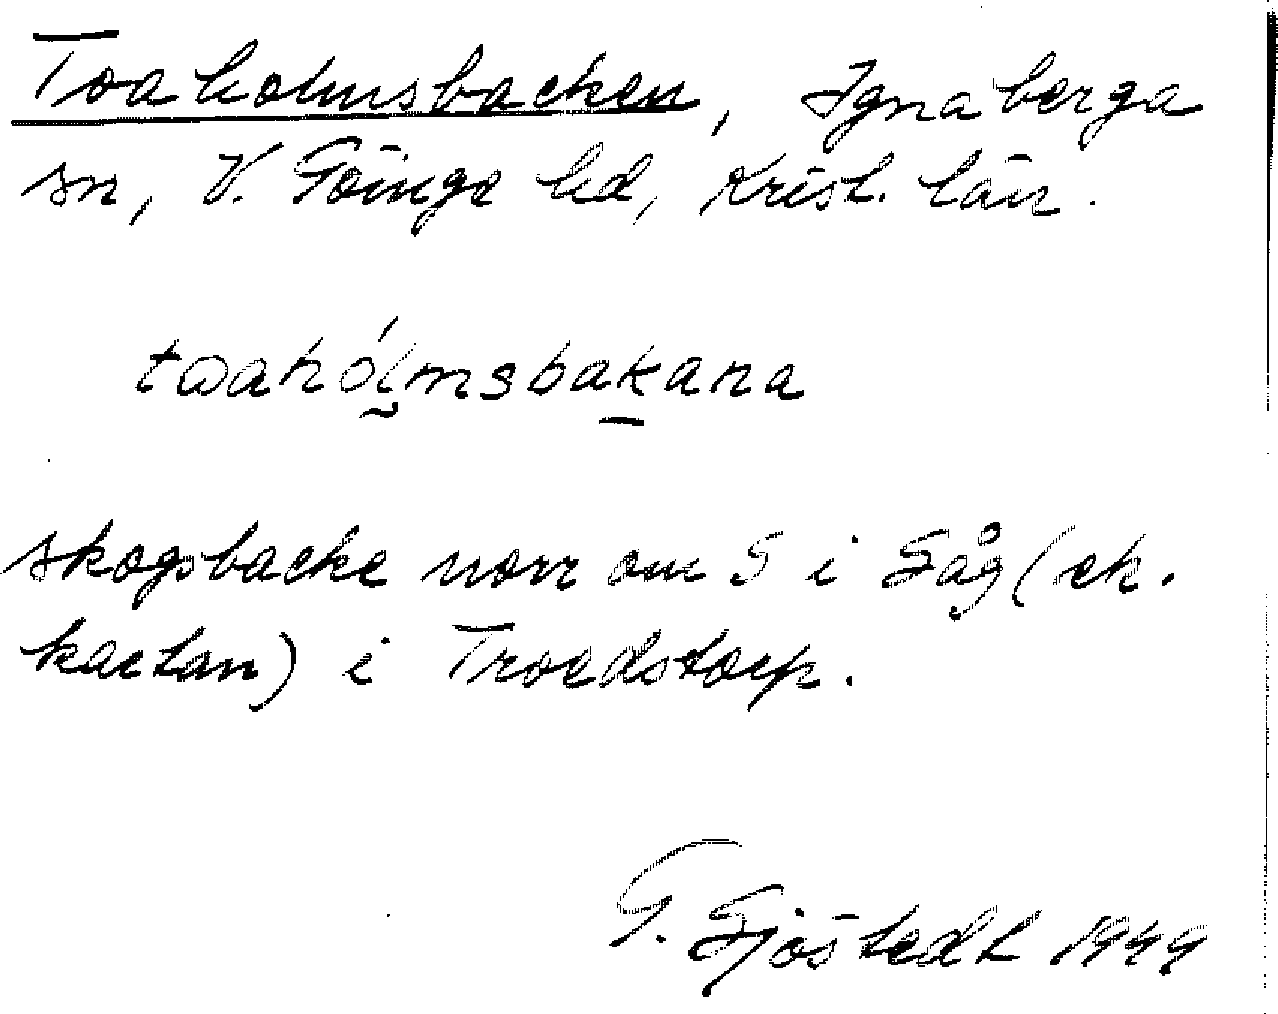 Toaholmsbacken, Ignaberga
sn, V. Göinge hd, Krist. län.
toahólmsbakana
skogsbacke norr om S i Såg (ek.
kartan) i Troedstorp.
G. Sjöstedt 1949